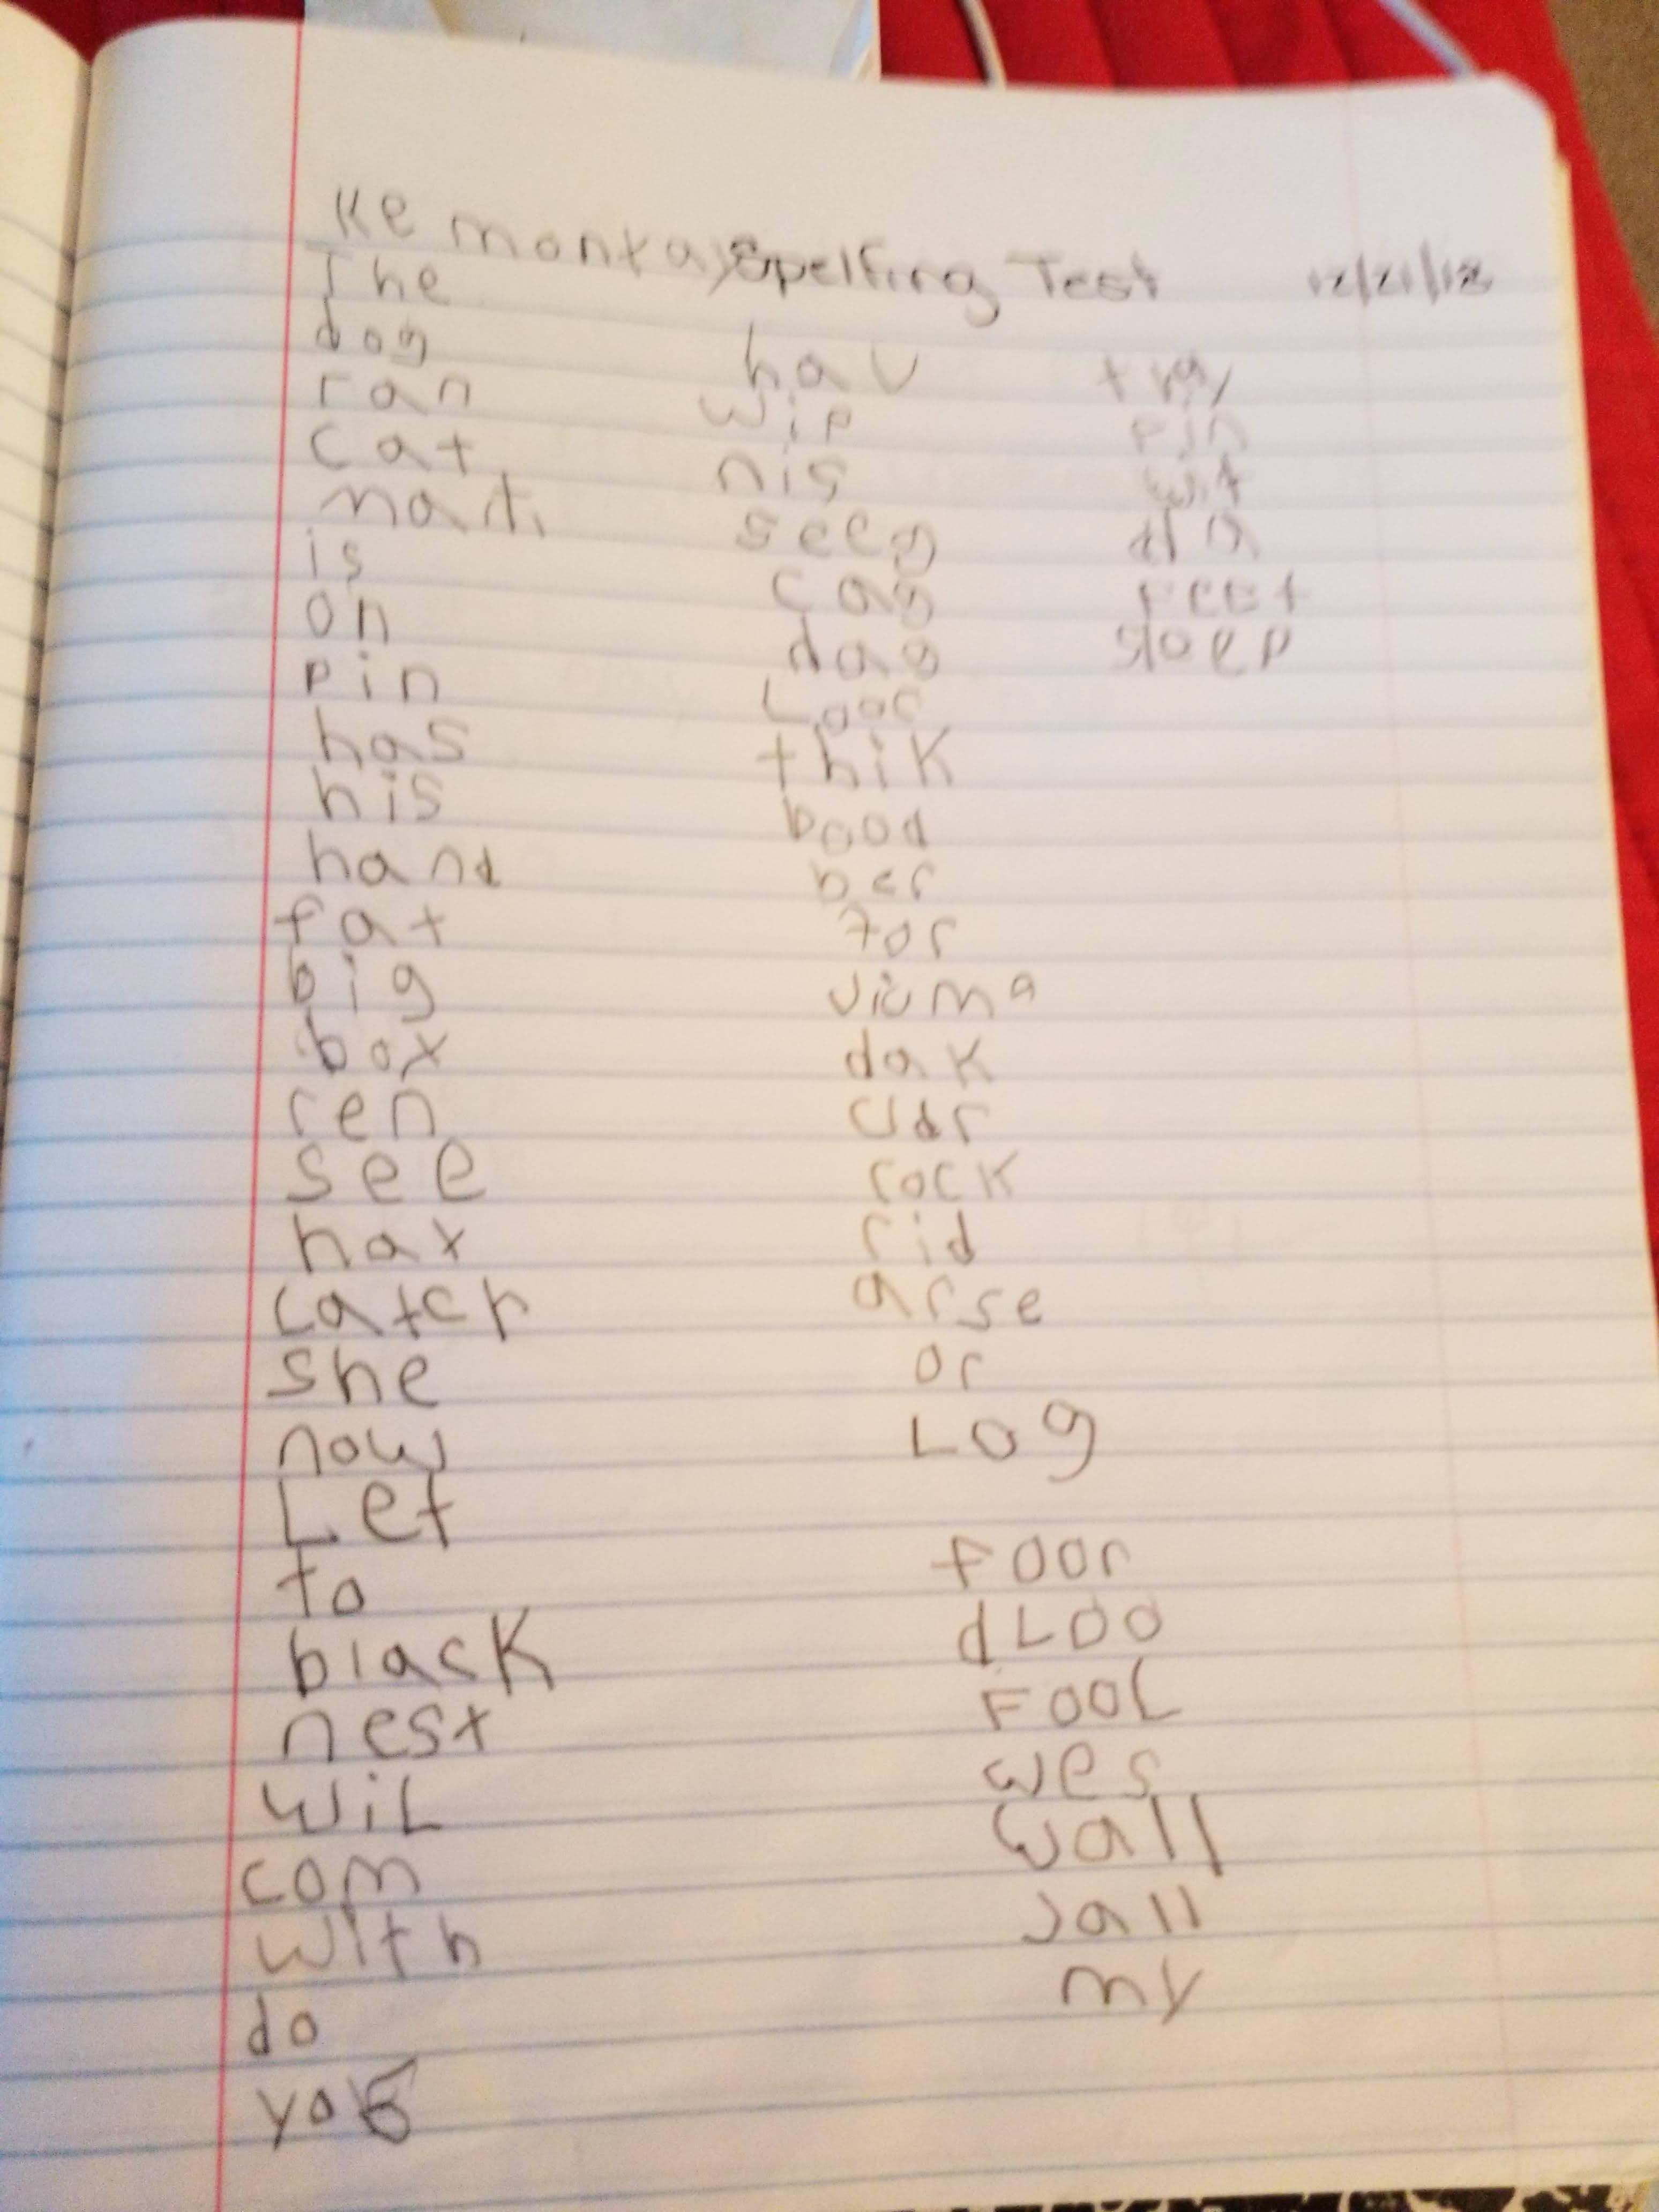 Kemontay Spelling Test 12/21/18
The
dog
ran
cat
is
on
pin
has
his
hand
fat
big
box
ren
see
hat
catch
she
now
Let
to
black
nest
wiL
com
with
do
hav
wip
nis
seeg
cag
dag
Looc
thik
bood
ber
for
viuma
dak
udr
rock
rid
arse
or
Log
foor
dLoo
FOOL
wes
wall
Jall
my
pin
wit
feet
sloep